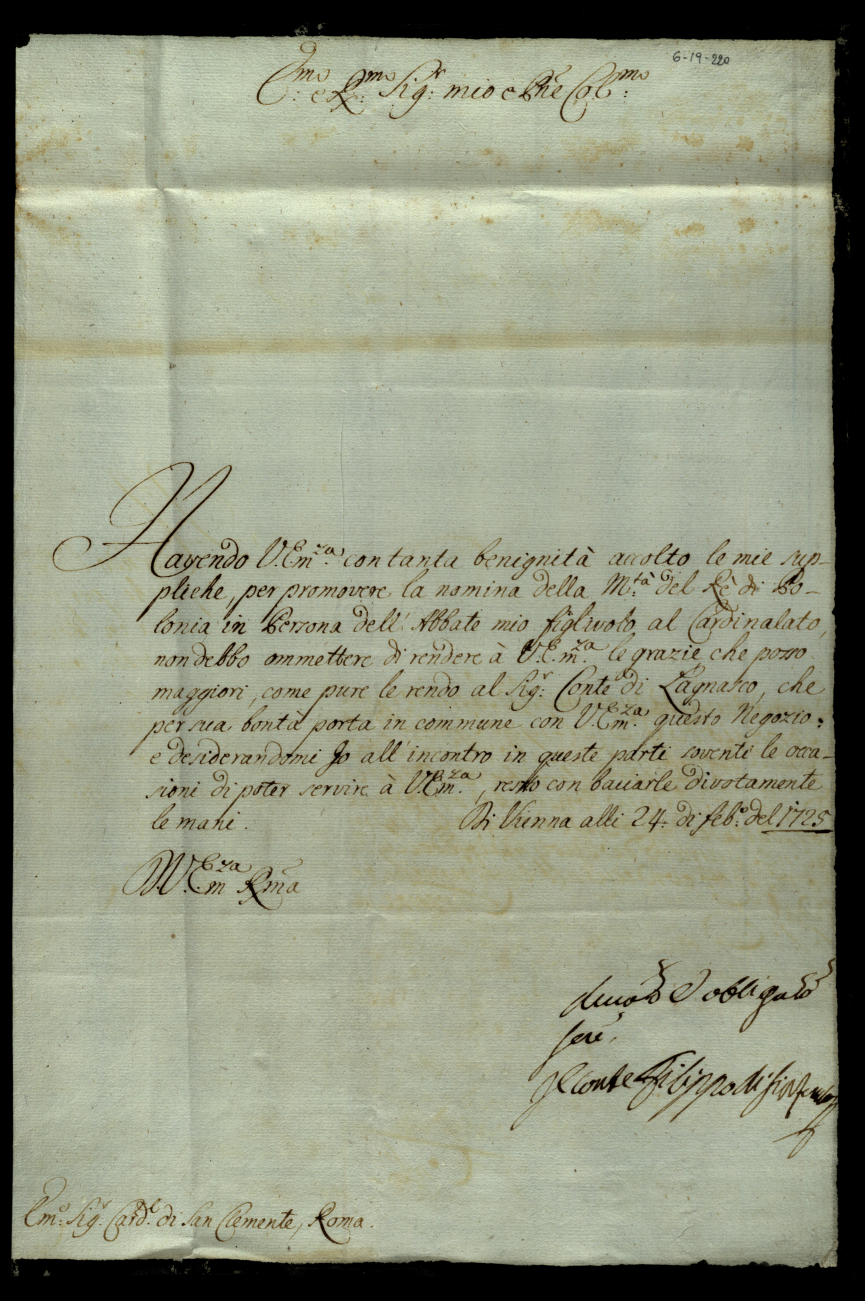 6-19-220
E:mo e R:mo Sig:r mio e Pñe Col:mo
Havendo V. Em:za con tanta benignità accolto le mie sup-
pliche, per promovere la nomina della M:tà del Rè di Po-
lonia in Persona dell' Abbate mio figlivolo al Cardinalato,
non debbo ommettere di rendere à V. Em:za le grazie che posso
maggiori, come pure le rendo al Sig:r Conte di Lagnasco, che
per sua bontà porta in commune con V. Em:za questo Negozio:
e desiderandomi Jo all' incontro in queste parti soventi le occa-
sioni di poter servire à V. Em:za, resto con baciarle divotamente
le mani. Di Vienna alli 24. di feb:o del 1725
D. V. Em:za Rm̃a
devoto e obligato
sere,
Jl Conte Filippo di
Em:o Sig:r Card:l di San Clemente, Roma.